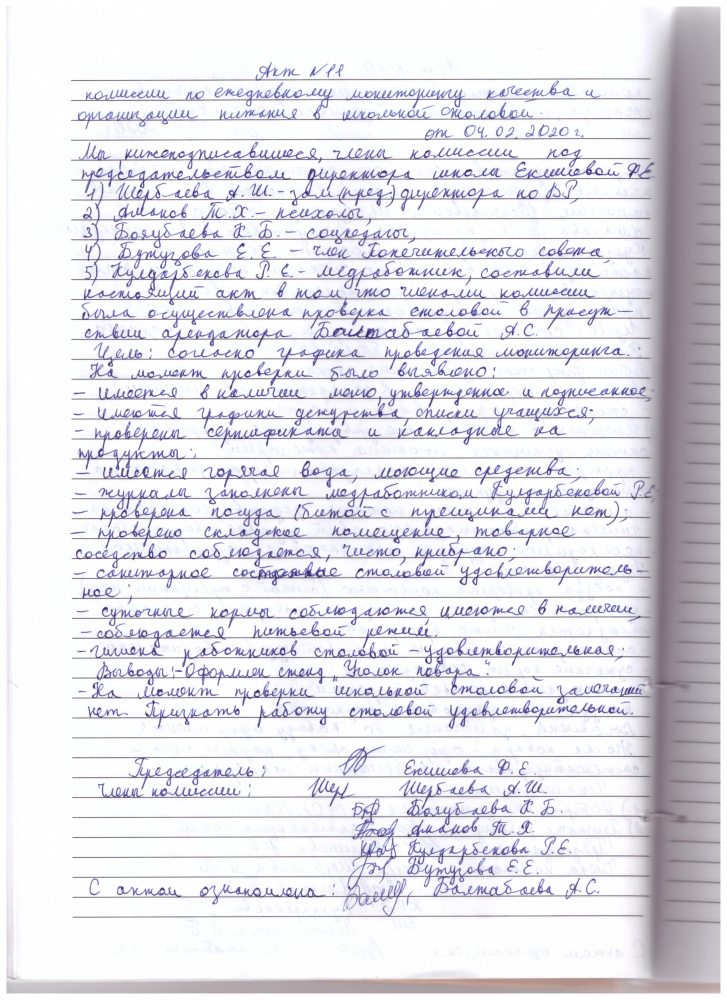 Акт №11
комиссии по ежедневному мониторингу качества и
организации питания в школьной столовой.
от 04.02.2020 г.
Мы, нижеподписавшиеся, члены комиссии под
председательством директора школы Екишевой Ф.Е.
1) Шербаева А.Ш. - зам(пред) директора по ВР,
2) Аманов Т.Х. - психолог,
3) Бояубаева К.Б. - соцпедагог,
4) Бутузова Е.Е. - член Попечительского совета,
5) Кулдарбекова Р.Е. - медработник, составили
настоящий акт в том, что членами комиссии
была осуществлена проверка столовой в присут-
ствии арендатора Балтабаевой А.С.
Цель: согласно графика проведения мониторинга.
На момент проверки было выявлено:
- имеется в наличии меню, утвержденное и подписанное;
- имеются графики дежурства, списки учащихся;
- проверены сертификаты и накладные на
продукты;
- имеются горячая вода, моющие средства;
- журналы заполнены медработником Кулдарбековой Р.Е.
- проверена посуда (битой с трещинами нет);
- проверено складское помещение, товарное
соседство соблюдается, чисто, прибрано;
- санитарное состояние столовой удовлетворитель-
ное;
- суточные нормы соблюдаются, имеются в наличии,
- соблюдается питьевой режим.
- гигиена работников столовой - удовлетворительная;
Выводы: - Оформлен стенд "Уголок повара".
- На момент проверки школьной столовой замечаний
нет. Признать работу столовой удовлетворительной.
Председатель: Екишева Ф.Е.
Члены комиссии: Шербаева А.Ш.
Бояубаева К.Б.
Аманов Т.Х.
Кулдарбекова Р.Е.
Бутузова Е.Е.
С актом ознакомлена: Балтабаева А.С.